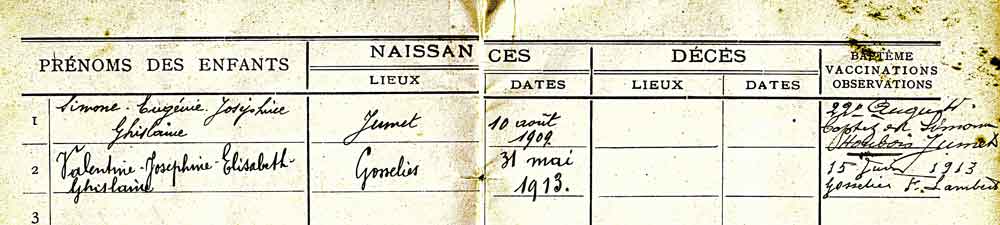 PRÉNOMS DES ENFANTS
NAISSANCES
DÉCÈS
BAPTÊME
VACCINATIONS
OBSERVATIONS
LIEUX
DATES
LIEUX
DATES
1
Simone-Eugénie-Joséphine
Ghislaine
Jumet
10 août
1909.
Jumet
2
Valentine-Josephine-Elisabeth-
Ghislaine
Gosselies
31 mai
1913.
15 Juin 1913
Gosselies St Lambert
3